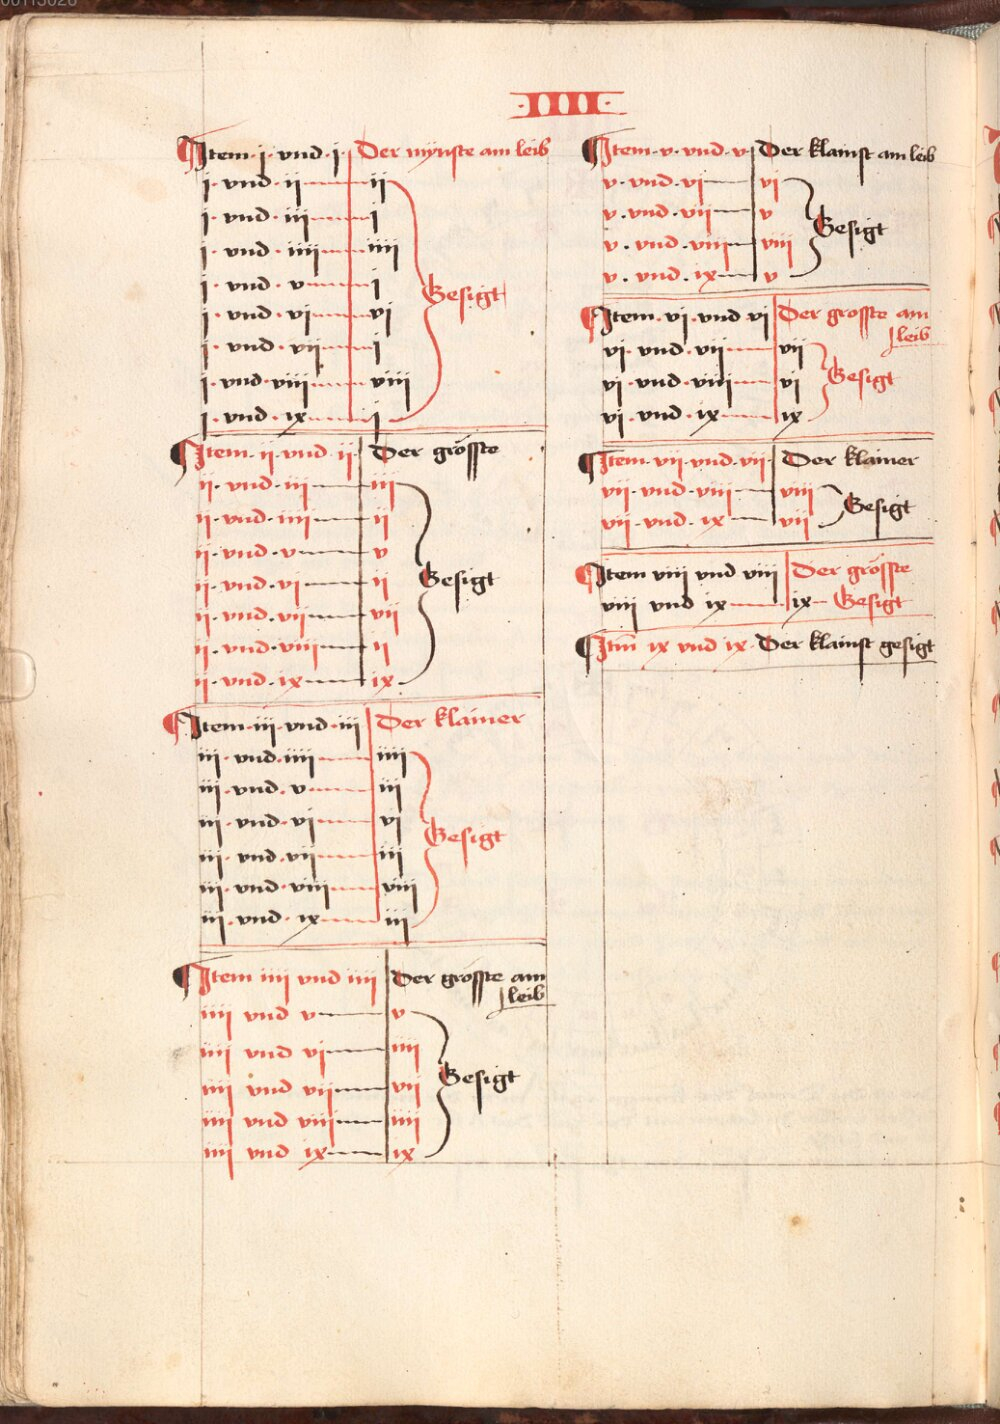 ·IIII·
Item · j · vnd · j · Der mynste am leib
j · vnd · ij ij
j · vnd · iij j
j · vnd · iiij iiij
j · vnd · v j
j · vnd · vj vj
j · vnd · vij j
j · vnd · viij viij
j · vnd · ix j
Gesigt
Item · ij · vnd · ij Der grösste
ij · vnd · iij iij
ij · vnd · iiij ij
ij · vnd · v v
ij · vnd · vj ij
ij · vnd · vij vij
ij · vnd · viij ij
ij · vnd · ix ix
Gesigt
Item · iij · vnd · iij Der klainer
iij · vnd · iiij iiij
iij · vnd · v iij
iij · vnd · vj vj
iij · vnd · vij iij
iij · vnd · viij viij
iij · vnd · ix iij
Gesigt
Item iiij vnd iiij Der grösste am
leib
iiij vnd v v
iiij vnd vj iiij
iiij vnd vij vij
iiij vnd viij iiij
iiij vnd ix ix
Gesigt
Item · v · vnd · v Der klainst am leib
v · vnd · vj vj
v · vnd · vij v
v · vnd · viij viij
v · vnd · ix v
Gesigt
Item · vj · vnd vj Der grosste am
leib
vj · vnd · vij vij
vj · vnd · viij vj
vj · vnd · ix ix
Gesigt
Item · vij · vnd · vij Der klainer
vij · vnd · viij viij
vij · vnd · ix vij
Gesigt
Item viij vnd viij Der grösste
viij vnd ix ix Gesigt
Itm ix vnd ix · Der klainst gesigt